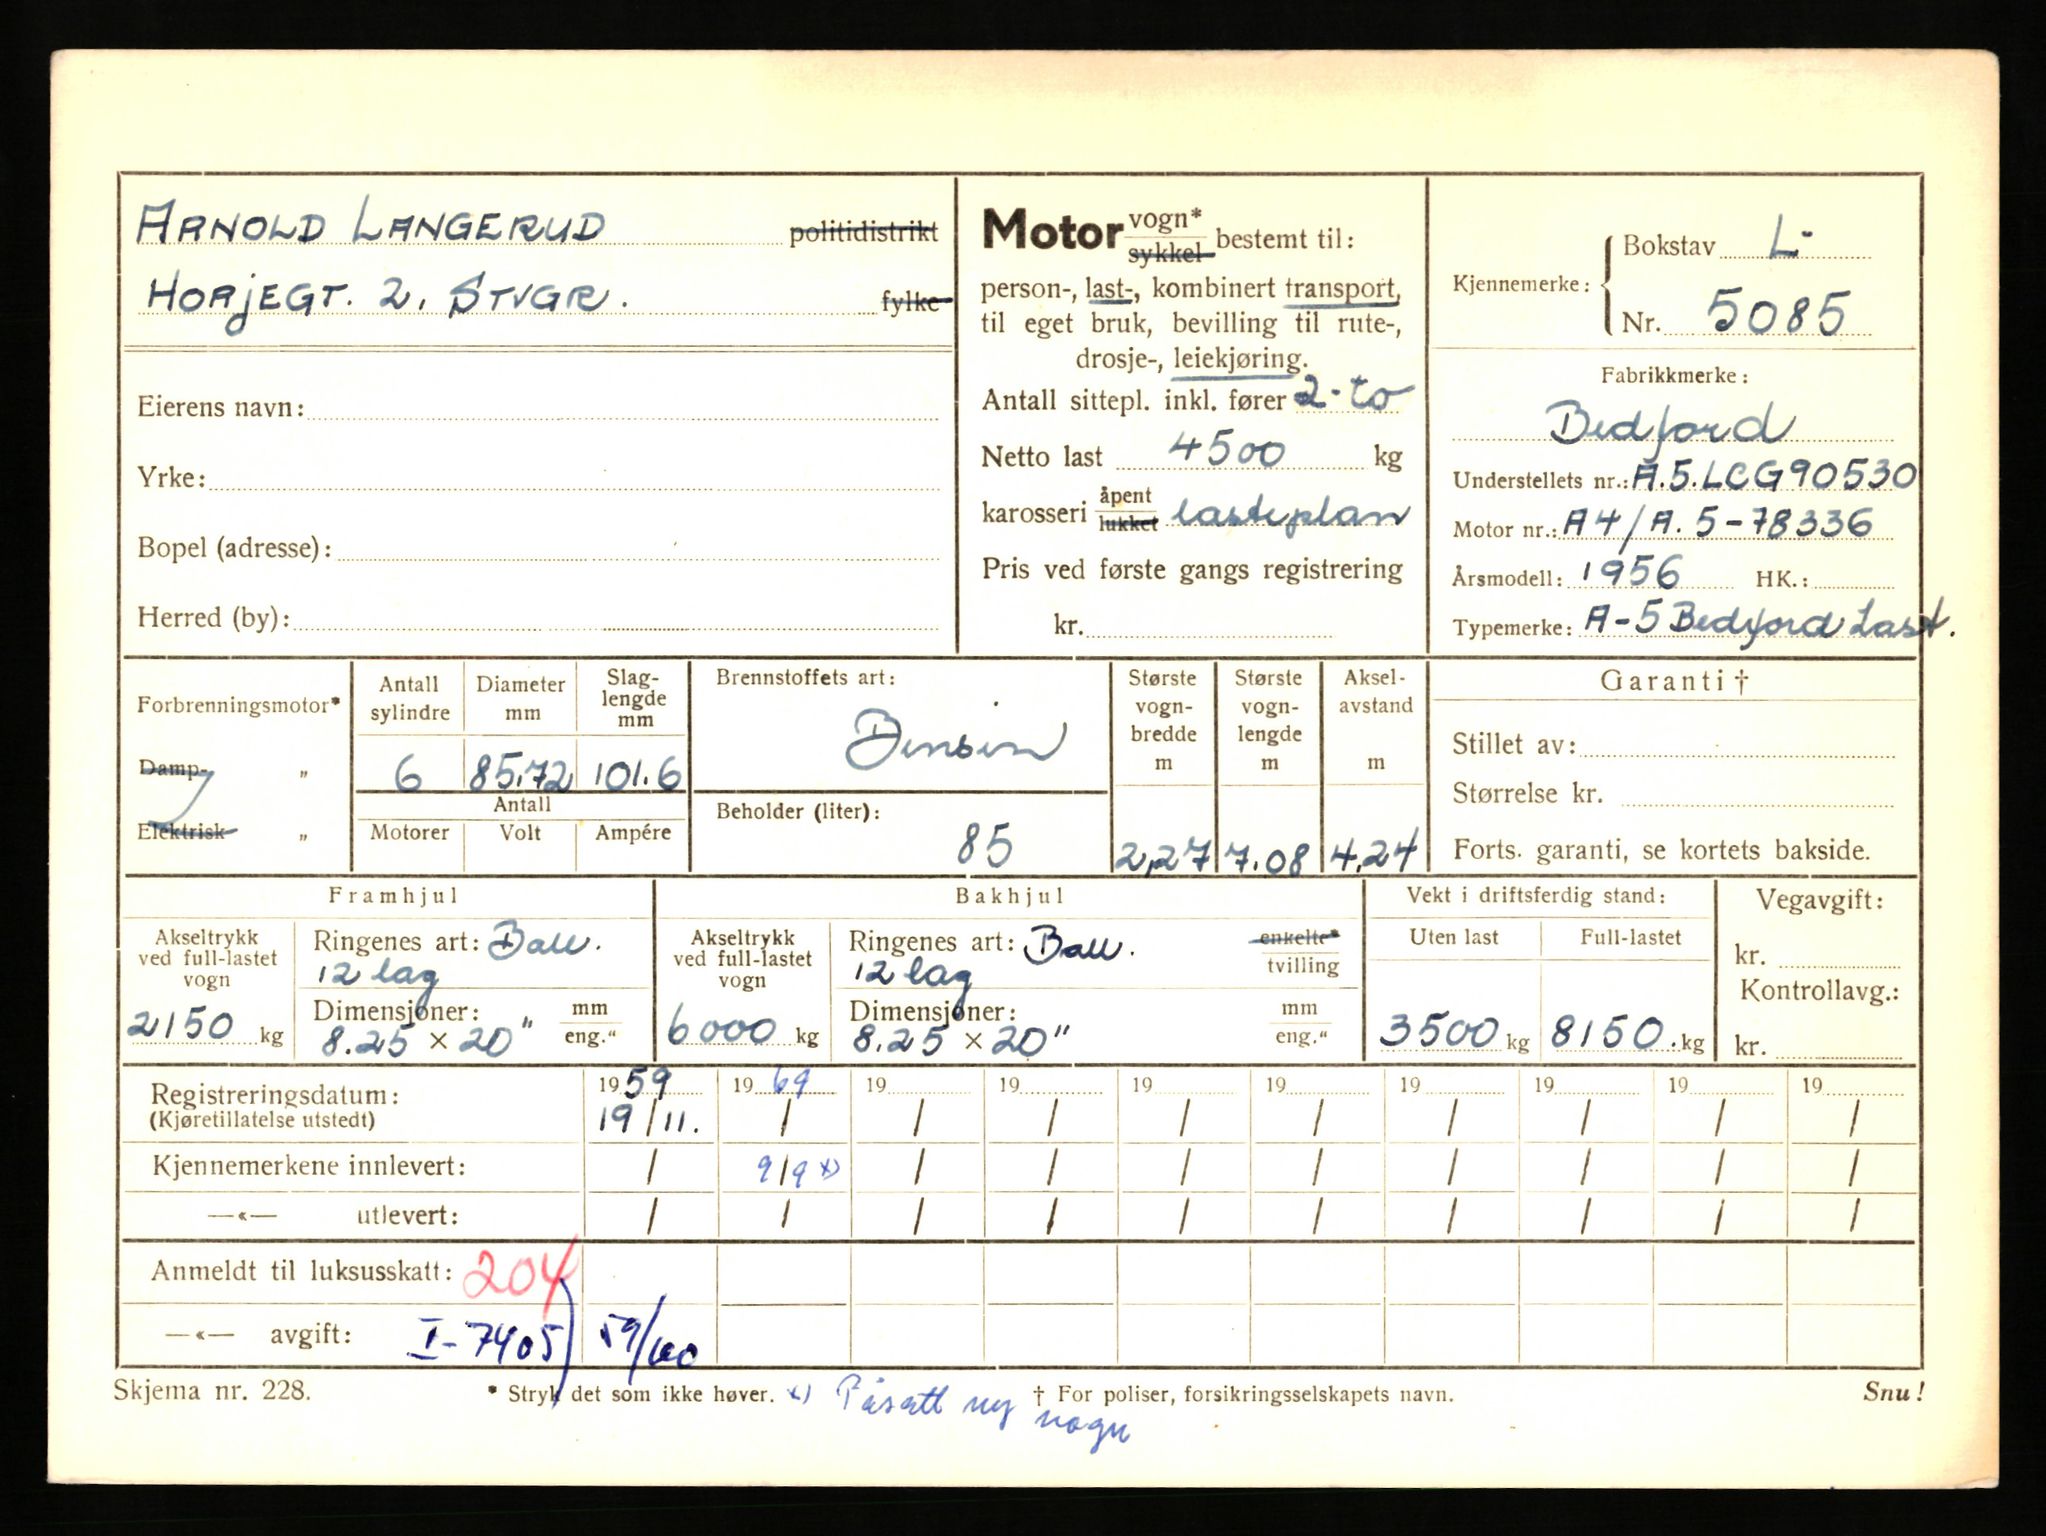 ARNOLD LANGERUD politidistrikt
HORJEGT. 2. STVGR. fylke
Eierens navn:
Yrke:
Bopel (adresse):
Herred (by):
Motor vogn* sykkel bestemt til:
person-, last-, kombinert transport,
til eget bruk, bevilling til rute-,
drosje-, leiekjøring.
Antall sittepl. inkl. fører 2-to
Netto last 4500 kg
karosseri åpent lukket lasteplan
Pris ved første gangs registrering
kr.
Kjennemerke: Bokstav L-
Nr. 5085
Fabrikkmerke:
Bedford
Understellets nr.: A.5.LCG90530
Motor nr.: A4/A.5-78336
Årsmodell: 1956 HK.:
Typemerke: A-5 Bedford Last.
Forbrenningsmotor*
Damp- "
Elektrisk "
Antall sylindre Diameter mm Slaglengde mm
6 85.72 101.6
Antall
Motorer Volt Ampére
Brennstoffets art:
Bensin
Beholder (liter):
85
Største vogn-bredde m Største vogn-lengde m Aksel-avstand m
2,27 7.08 4.24
Garanti †
Stillet av:
Størrelse kr.
Forts. garanti, se kortets bakside.
Framhjul
Akseltrykk ved full-lastet vogn
2150 kg
Ringenes art: Ball.
12 lag
Dimensjoner: mm
8.25 × 20" eng."
Bakhjul
Akseltrykk ved full-lastet vogn
6000 kg
Ringenes art: Ball. enkelte*
12 lag tvilling
Dimensjoner: mm
8.25 × 20" eng."
Vekt i driftsferdig stand:
Uten last Full-lastet
3500 kg 8150. kg
Vegavgift:
kr.
Kontrollavg.:
kr.
Registreringsdatum: 1959 1969 19 19 19 19 19 19 19 19
(Kjøretillatelse utstedt) 19/11. / / / / / / / / /
Kjennemerkene innlevert: / 9/9 x) / / / / / / / /
—«— utlevert: / / / / / / / / / /
Anmeldt til luksusskatt: 204
—«— avgift: I-7405 59/60
Skjema nr. 228. * Stryk det som ikke høver. x) Påsatt ny † For poliser, forsikringsselskapets navn. Snu!
vogn